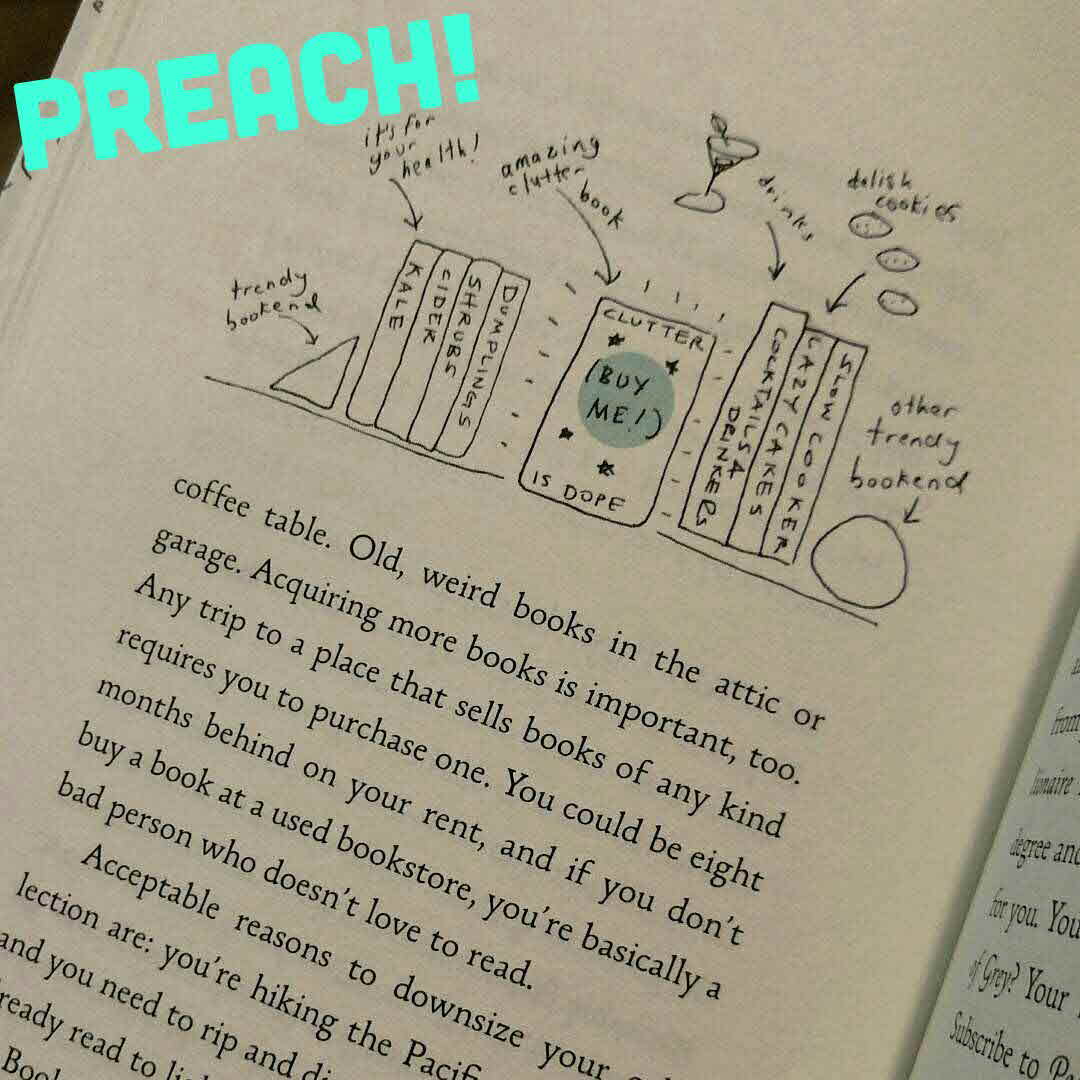 PREACH!
it's for
your
health!
amazing
clutter
book
drinks
delish
cookies
trendy
bookend
KALE
CIDER
SHRUBS
DUMPLINGS
CLUTTER
(BUY
ME!)
IS DOPE
COCKTAILS &
DRINKERS
LAZY CAKES
SLOW COOKER
other
trendy
bookend
coffee table. Old, weird books in the attic or
garage. Acquiring more books is important, too.
Any trip to a place that sells books of any kind
requires you to purchase one. You could be eight
months behind on your rent, and if you don't
buy a book at a used bookstore, you're basically a
bad person who doesn't love to read.
Acceptable reasons to downsize your
lection are: you're hiking the
and you need to rip and
ready read to
from
degree and
for you. You
of Grey? Your
Subscribe to